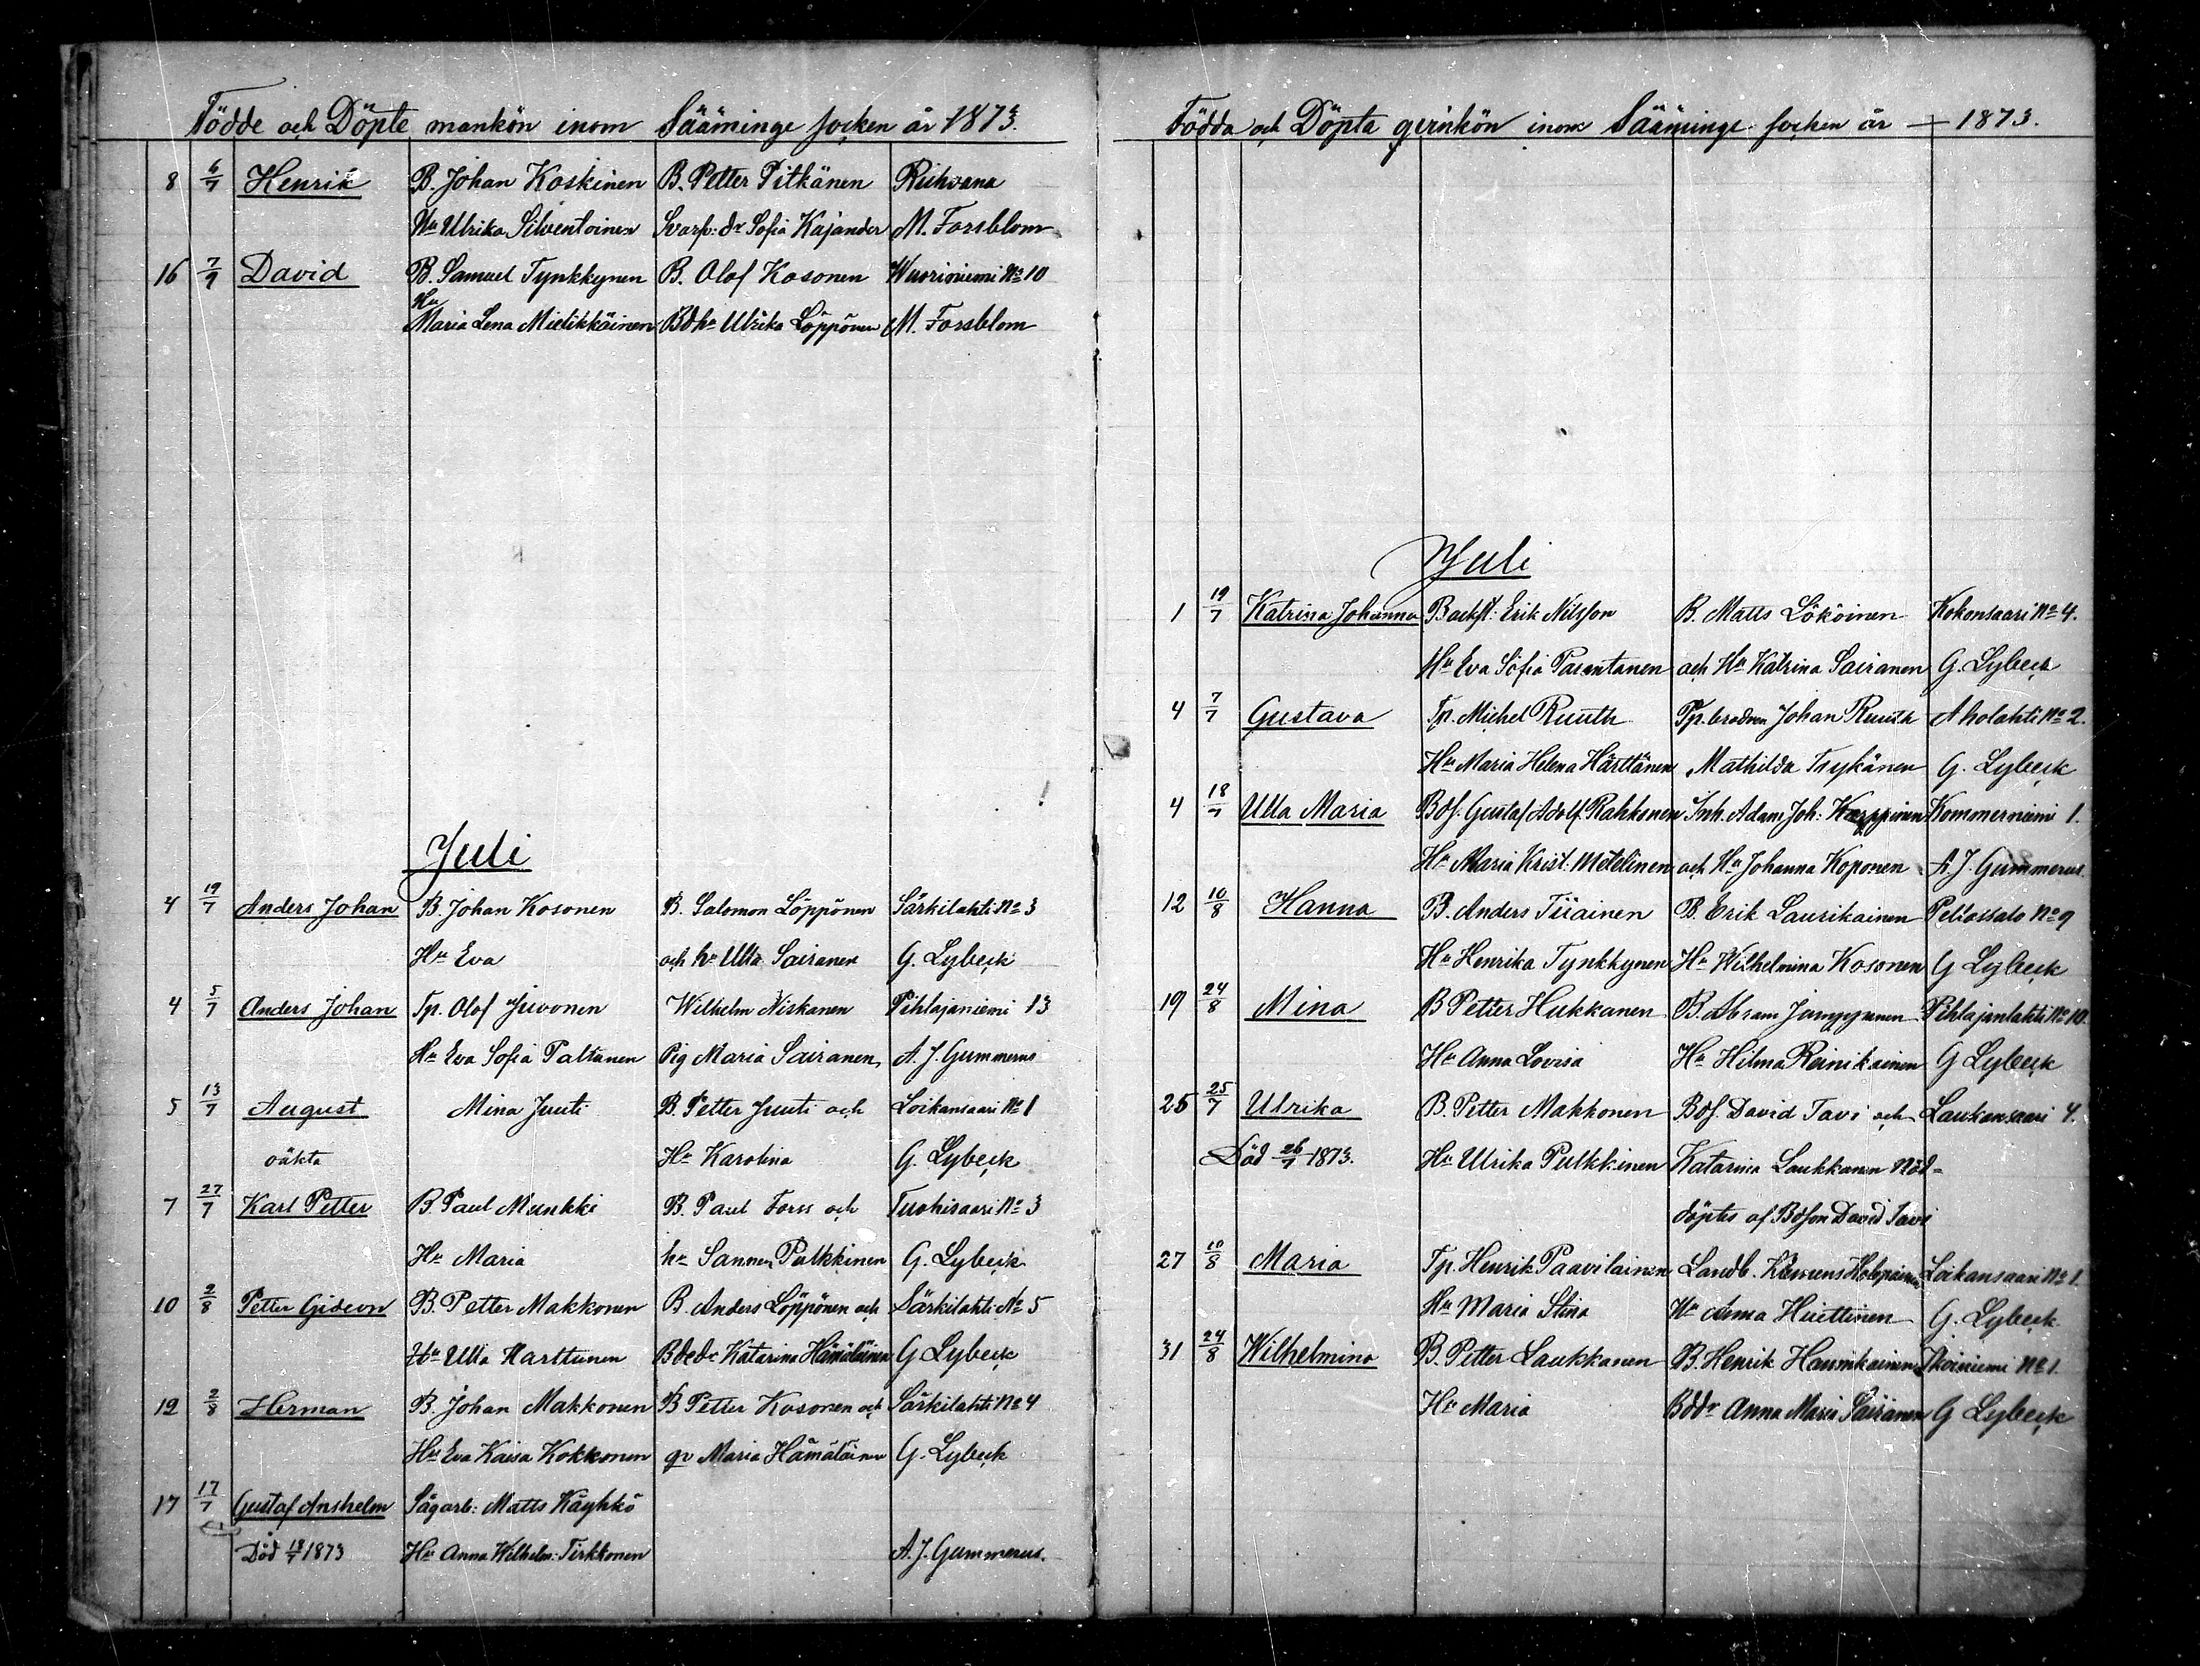 Födde och Döpte mankön inom Sääminge socken år 1873.
8 6/7 Henrik B. Johan Koskinen B. Petter Pitkänen Riihvana
Hu Ulrika Silventoinen Svarf: dr Sofia Kajander M. Forsblom
16 7/9 David B. Samuel Tynkkynen B. Olof Kosonen Wuoriniemi No 10
Hu Maria Lena Mielikkäinen Bdhu Ulrika Löppönen M. Forsblom
Juli
4 19/7 Anders Johan B. Johan Kosonen B. Salomon Löppönen Särkilahti No 3
Hu Eva och hu Ulla Sairanen G. Lybeck
4 5/7 Anders Johan Tp. Olof Juvonen Wilhelm Niskanen Pihlajaniemi 13
Hu Eva Sofia Paltanen Pig Maria Sairanen A. J. Gummerus
5 13/7 August Mina Juuti B. Petter Juuti och Loikansaari No 1
oäkta Hu Karolina G. Lybeck
7 27/7 Karl Petter B. Paul Munkki B. Paul Forss och Tuohisaari No 3
Hu Maria hu Sanna Pulkkinen G. Lybeck
10 2/8 Petter Gideon B. Petter Makkonen B. Anders Löppönen och Särkilahti No 5
Hu Ulla Harttunen Bdedr Katarina Hämäläinen G Lybeck
12 2/8 Herman B. Johan Makkonen B Petter Kosonen och Särkilahti No 4
Hu Eva Kaisa Kokkonen qv Maria Hämäläinen G. Lybeck
17 17/7 Gustaf Anshelm Sågarb: Matts Käyhkö
Död 18/7 1873 Hu Anna Wilhelm: Tirkkonen A. J. Gummerus.
Födda och Döpta qvinkön inom Sääminge socken år 1873.
Juli
1 19/7 Katrina Johanna Backst: Erik Nilsson B. Matts Lököinen Kokonsaari No 4.
Hu Eva Sofia Parantanen och Hu Katrina Sairanen G. Lybeck
4 7/7 Gustava Tp. Michel Ruuth Tp. brodren Johan Ruuth Aholahti No 2.
Hu Maria Helena Härttänen Mathilda Tsykänen G. Lybeck
4 18/7 Ulla Maria Bds. Gustaf Adolf Rahkonen Inh. Adam Joh: Karppinen Kommerniemi 1.
Hu Maria Krist. Metelinen och Hu Johanna Koponen A. J. Gummerus.
12 10/8 Hanna B. Anders Tiiainen B. Erik Laurikainen Pellossalo No 9
Hu Henrika Tynkkynen Hu Wilhelmina Kosonen G Lybeck
19 24/8 Mina B Petter Hukkanen B. Abram Pihlajanlahti No 10.
Hu Anna Lovisa Hu Hilma Reinikainen G Lybeck
25 25/7 Ulrika B. Petter Makkonen Bds. David Tavi och Laukansaari 4.
Död 26/7 1873. Hu Ulrika Pulkkinen Katarina Laukkanen Nöd-
döptes af Bdson David Tavi
27 10/8 Maria Tp. Henrik Paavilainen Landb. Klemens Holopainen Loikansaari No 1.
Hu Maria Stina Hu Anna Huttinen G. Lybeck
31 24/8 Wilhelmina B. Petter Laukkanen B. Henrik Hannikainen No 1.
Hu Maria Bddr Anna Maria Sairanen G Lybeck